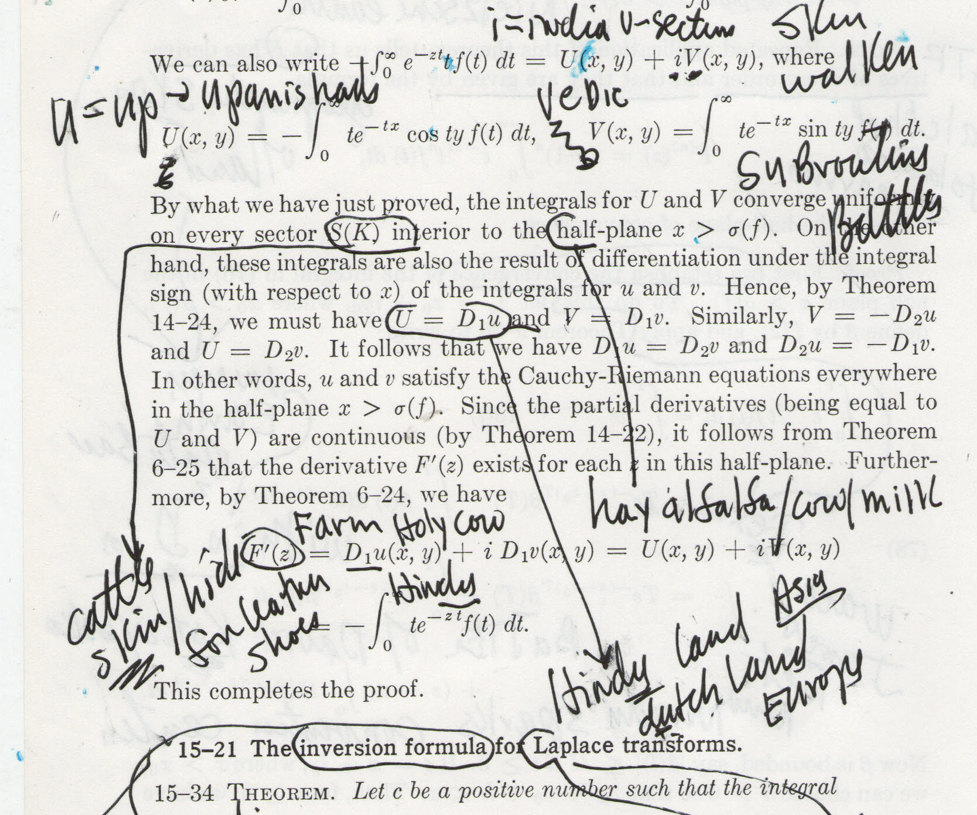 i = india V-section Skin
We can also write +∫₀^∞ e^{-zt}tf(t) dt = U(x, y) + iV(x, y), where
walken
U = up → upanishads
vedic
U(x, y) = −∫₀^∞ te^{−tx} cos ty f(t) dt, V(x, y) = ∫₀^∞ te^{−tx} sin ty f(t) dt.
Battles
By what we have just proved, the integrals for U and V converge uniformly
on every sector S(K) interior to the half-plane x > σ(f). On the other
hand, these integrals are also the result of differentiation under the integral
sign (with respect to x) of the integrals for u and v. Hence, by Theorem
14–24, we must have U = D₁u and V = D₁v. Similarly, V = −D₂u
and U = D₂v. It follows that we have D₁u = D₂v and D₂u = −D₁v.
In other words, u and v satisfy the Cauchy-Riemann equations everywhere
in the half-plane x > σ(f). Since the partial derivatives (being equal to
U and V) are continuous (by Theorem 14–22), it follows from Theorem
6–25 that the derivative F′(z) exists for each z in this half-plane. Further-
more, by Theorem 6–24, we have
hay alfalfa/cow/milk
Farm Holy Cow
F′(z) = D₁u(x, y) + i D₁v(x, y) = U(x, y) + iV(x, y)
cattle
skin/hide
son leather
shoes
Hindu
= ∫₀^∞ te^{−zt}f(t) dt.
Hindu land Asia
dutch land Europe
This completes the proof.
15–21 The inversion formula for Laplace transforms.
15–34 THEOREM. Let c be a positive number such that the integral